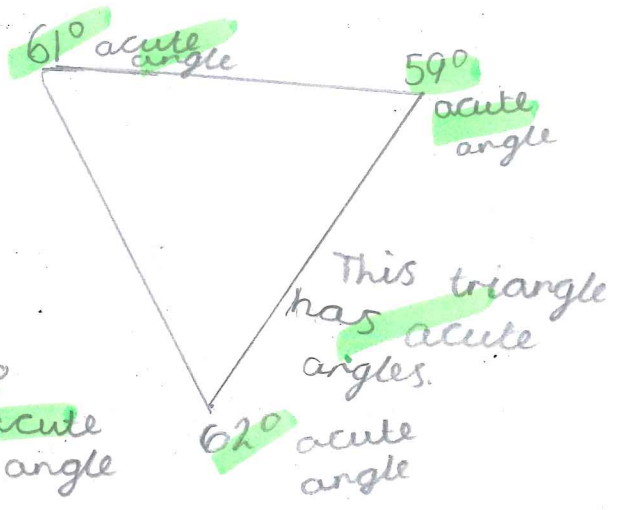 61° acute
angle
59°
acute
angle
This triangle
has acute
angles.
62° acute
angle
acute
angle